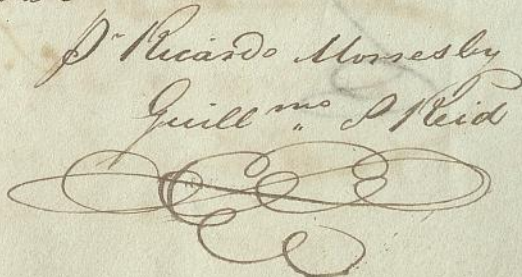 Pr Ricardo Morresby
Guillmo S Reid